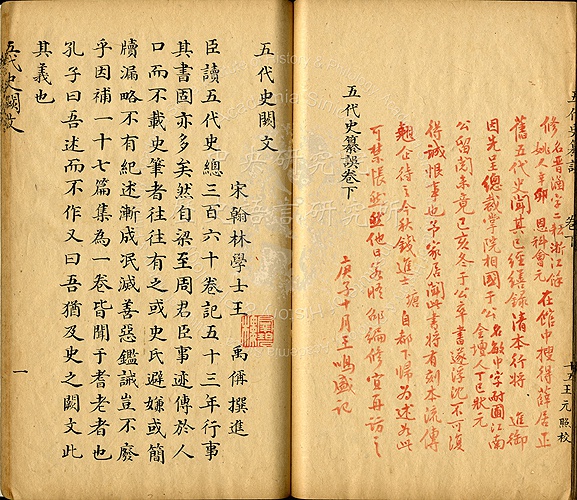 五代史纂誤 卷下
十五 王元照校
修
名晉涵字二雲浙江餘
姚人辛卯 恩科會元
在館中搜得薛居正
舊五代史聞其已經繕錄清本行將 進御
因先呈總裁學院相國于公
名敏中字耐圃江南
金壇人丁巳狀元
公留閱未竟己亥冬于公卒書遂浮沈不可復
得誠恨事也予家居聞此書將有刻本流傳
翹企待之今秋錢進士 塘 自都下歸為述如此
可 悵然然他日 邵編修宜再訪之
庚子十月王鳴盛記
五代史纂誤卷下
五代史闕文
宋翰林學士王 禹偁撰進
臣讀五代史總三百六十卷記五十三年行事
其書固亦多矣然自梁至周君臣事迹傳於人
口而不載史筆者往往有之或史氏避嫌或簡
牘漏略不有紀述漸成泯滅善惡鑑誡豈不廢
乎因補一十七篇集為一卷皆聞于耆老者也
孔子曰吾述而不作又曰吾猶及史之闕文此
其義也
五代史闕文
一